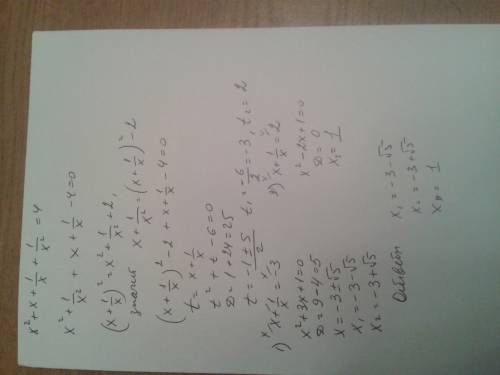 x² + x + 1/x + 1/x² = 4
x² + 1/x² + x + 1/x - 4 = 0
(x + 1/x)² = x² + 1/x² + 2,
значит x + 1/x² = (x + 1/x)² - 2
(x + 1/x)² - 2 + x + 1/x - 4 = 0
t = x + 1/x
t² + t - 6 = 0
D = 1 + 24 = 25
t = -1 ± 5 / 2 t₁ = -6/2 = -3, t₂ = 2
1) x + 1/x = -3
x² + 3x + 1 = 0
D = 9 - 4 = 5
x = -3 ± √5
x₁ = -3 - √5
x₂ = -3 + √5
2) x + 1/x = 2
x² - 2x + 1 = 0
D = 0
x₃ = 1
Ответ: x₁ = -3 - √5
x₂ = -3 + √5
x₃ = 1